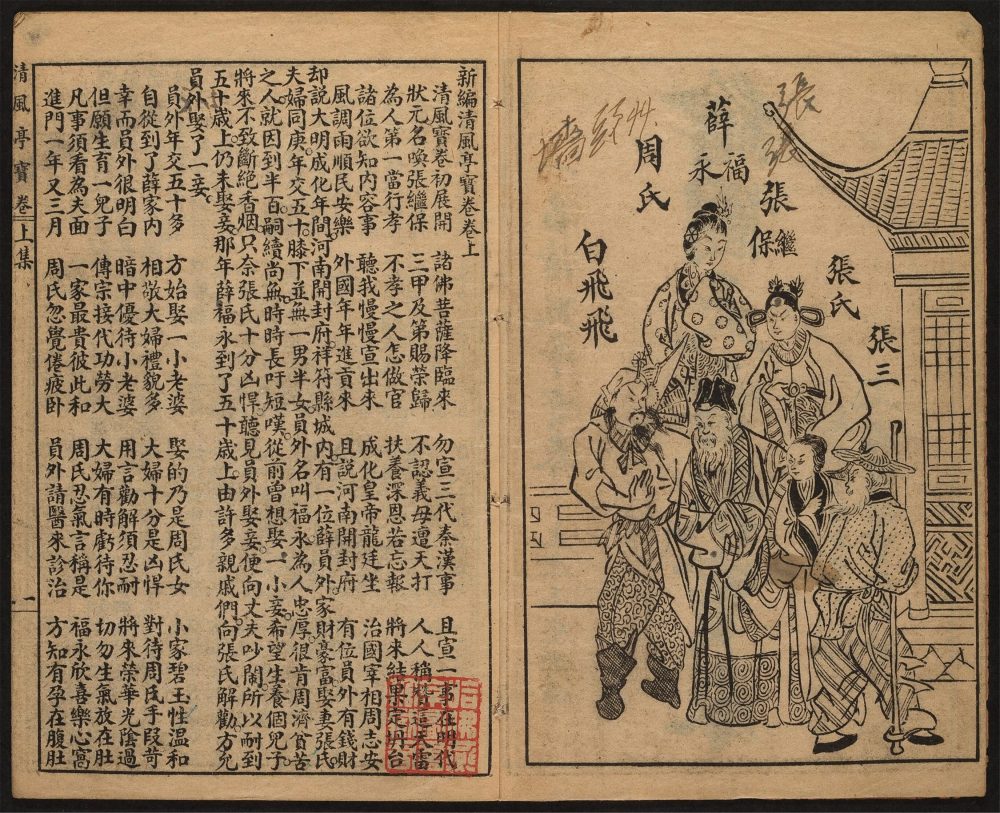 張
張
張三
張氏
張繼保
薛福永
周氏
白飛飛
新編清風亭寶卷卷上
清風寶卷初展開 諸佛菩薩降臨來 勿宣三代秦漢事 且宣一事在明代
狀元名喚張繼保 三甲及第賜榮歸 不認義母遭天打 人人稱贊這天雷
為人第一當行孝 不孝之人怎做官 扶養深恩若忘報 將來結果定坍台
諸位欲知內容事 聽我慢慢宣出來 成化皇帝龍廷坐 治國宰相周志安
風調雨順民安樂 外國年年進貢來 且說河南開封府 有位員外有錢財
却說大明成化年間河南開封府祥符縣城內有一位薛員外家財豪富娶妻張氏
夫婦同庚年交五十膝下並無一男半女員外名叫福永為人忠厚很肯周濟貧苦
之人就因到半百嗣續尚無時時長吁短嘆從前曾想娶一小妾希望生養個兒子
將來不致斷絶香烟只奈張氏十分凶悍聽見員外娶妾便向丈夫吵鬧所以耐到
五十歲上仍未娶妾那年薛福永到了五十歲上由許多親戚們向張氏解勸方允
員外娶了一妾。
員外年交五十多 方始娶一小老婆 娶的乃是周氏女 小家碧玉性溫和
自從到了薛家內 相敬大婦禮貌多 大婦十分是凶悍 對待周氏手段苛
幸而員外很明白 暗中優待小老婆 用言勸解須忍耐 將來榮華光陰過
但願生育一兒子 傳宗接代功勞大 大婦有時虧待你 切勿生氣放在肚
凡事須看為夫面 一家最貴彼此和 周氏忍氣言稱是 福永欣喜樂心窩
進門一年又三月 周氏忽覺倦疲臥 員外請醫來診治 方知有孕在腹肚
清風亭寶卷 上集 一